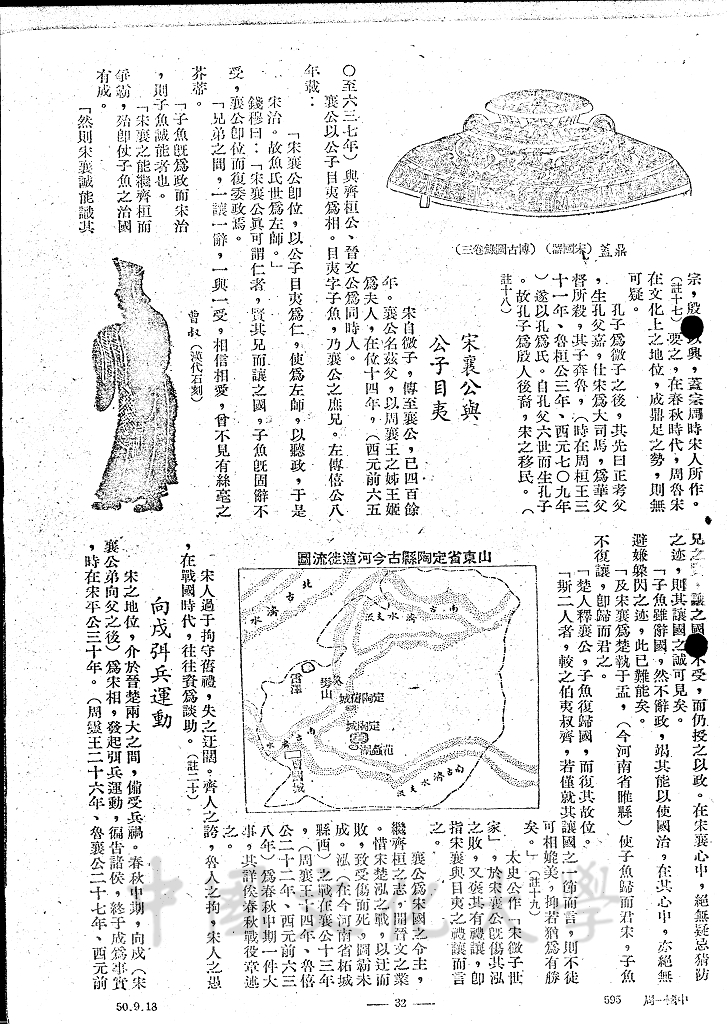 鼎蓋(宋國器)(博古圖錄卷三)
宗,殷以興,蓋宗周時宋人所作。
(註十七)要之,在春秋時代,周魯宋
在文化上之地位,成鼎足之勢,則無
可疑。
孔子為微子之後,其先曰正考父
,生孔父嘉,仕宋為大司馬,為華父
督所殺,其子奔魯,(時在周桓王三
十一年、魯桓公三年、西元七〇九年
)遂以孔為氏。自孔父六世而生孔子
。故孔子為殷人後裔,宋之移民。(
註十八)
宋襄公與
公子目夷
宋自微子,傳至襄公,已四百餘
年。襄公名茲父,以周襄王之姊王姬
為夫人,在位十四年,(西元前六五
〇至六三七年)與齊桓公、晉文公為同時人。
襄公以公子目夷為相。目夷字子魚,乃襄公之庶兄。左傳僖公八
年載:
「宋襄公卽位,以公子目夷為仁,使為左師,以聽政,于是
宋治。故魚氏世為左師。」
錢穆曰:「宋襄公眞可謂仁者,賢其兄而讓之國,子魚旣固辭不
受,襄公卽位而復委政焉。
「兄弟之間,一讓一辭,一與一受,相信相愛,曾不見有絲毫之
芥蒂。
「子魚旣為政而宋治
,則子魚誠能者也。
「宋襄之能繼齊桓而
爭霸,殆卽仗子魚之治國
有成。
「然則宋襄誠能識其
曹叔(漢代石刻)
兄之,讓之國不受,而仍授之以政。在宋襄心中,絕無疑忌猜防
之迹,則其讓國之誠可見矣。
「子魚雖辭國,然不辭政,竭其能以使國治,在其心中,亦絕無
避嫌躲閃之迹,此已難能矣。
「及宋襄為楚執于盂,(今河南省睢縣)使子魚歸而君宋,子魚
不復讓,卽歸而君之。
「楚人釋襄公,子魚復歸國,而復其故位。
「斯二人者,較之伯夷叔齊,若僅就其讓國之一節而言,則不徒
可相媲美,抑若猶為有勝
矣。」(註十九)
太史公作「宋微子世
家」,於宋襄公旣傷其泓
之敗,又襃其有禮讓,卽
指宋襄與目夷之禮讓而言
之。
襄公為宋國之令主,
繼齊桓之志,開晉文之業
。惜宋楚泓之戰,以迂而
敗,致受傷而死,圖霸未
成。泓(在今河南省柘城
縣西)之戰在襄公十三年
,(周襄王十四年、魯僖
公二十二年、西元前六三
八年)為春秋中期一件大
事,其詳俟春秋戰役章述
之。
山東省定陶縣古今河道徙流圖
北古濟水
南古濟水支派
雷澤
歷山
定陶舊城
定陶城
范蠡湖
南古濟水
曹國城
南古濟水支派
宋人過于拘守舊禮,失之迂闊。齊人之誇,魯人之拘,宋人之愚
,在戰國時代,往往資為談助。(註二十)
向戌弭兵運動
宋之地位,介於晉楚兩大之間,備受兵禍。春秋中期,向戌(宋
襄公弟向父之後)為宋相,發起弭兵運動,徧告諸侯,終于成為事實
,時在宋平公三十年。(周靈王二十六年、魯襄公二十七年、西元前
50.9.18
— 32 —
595
中國一周